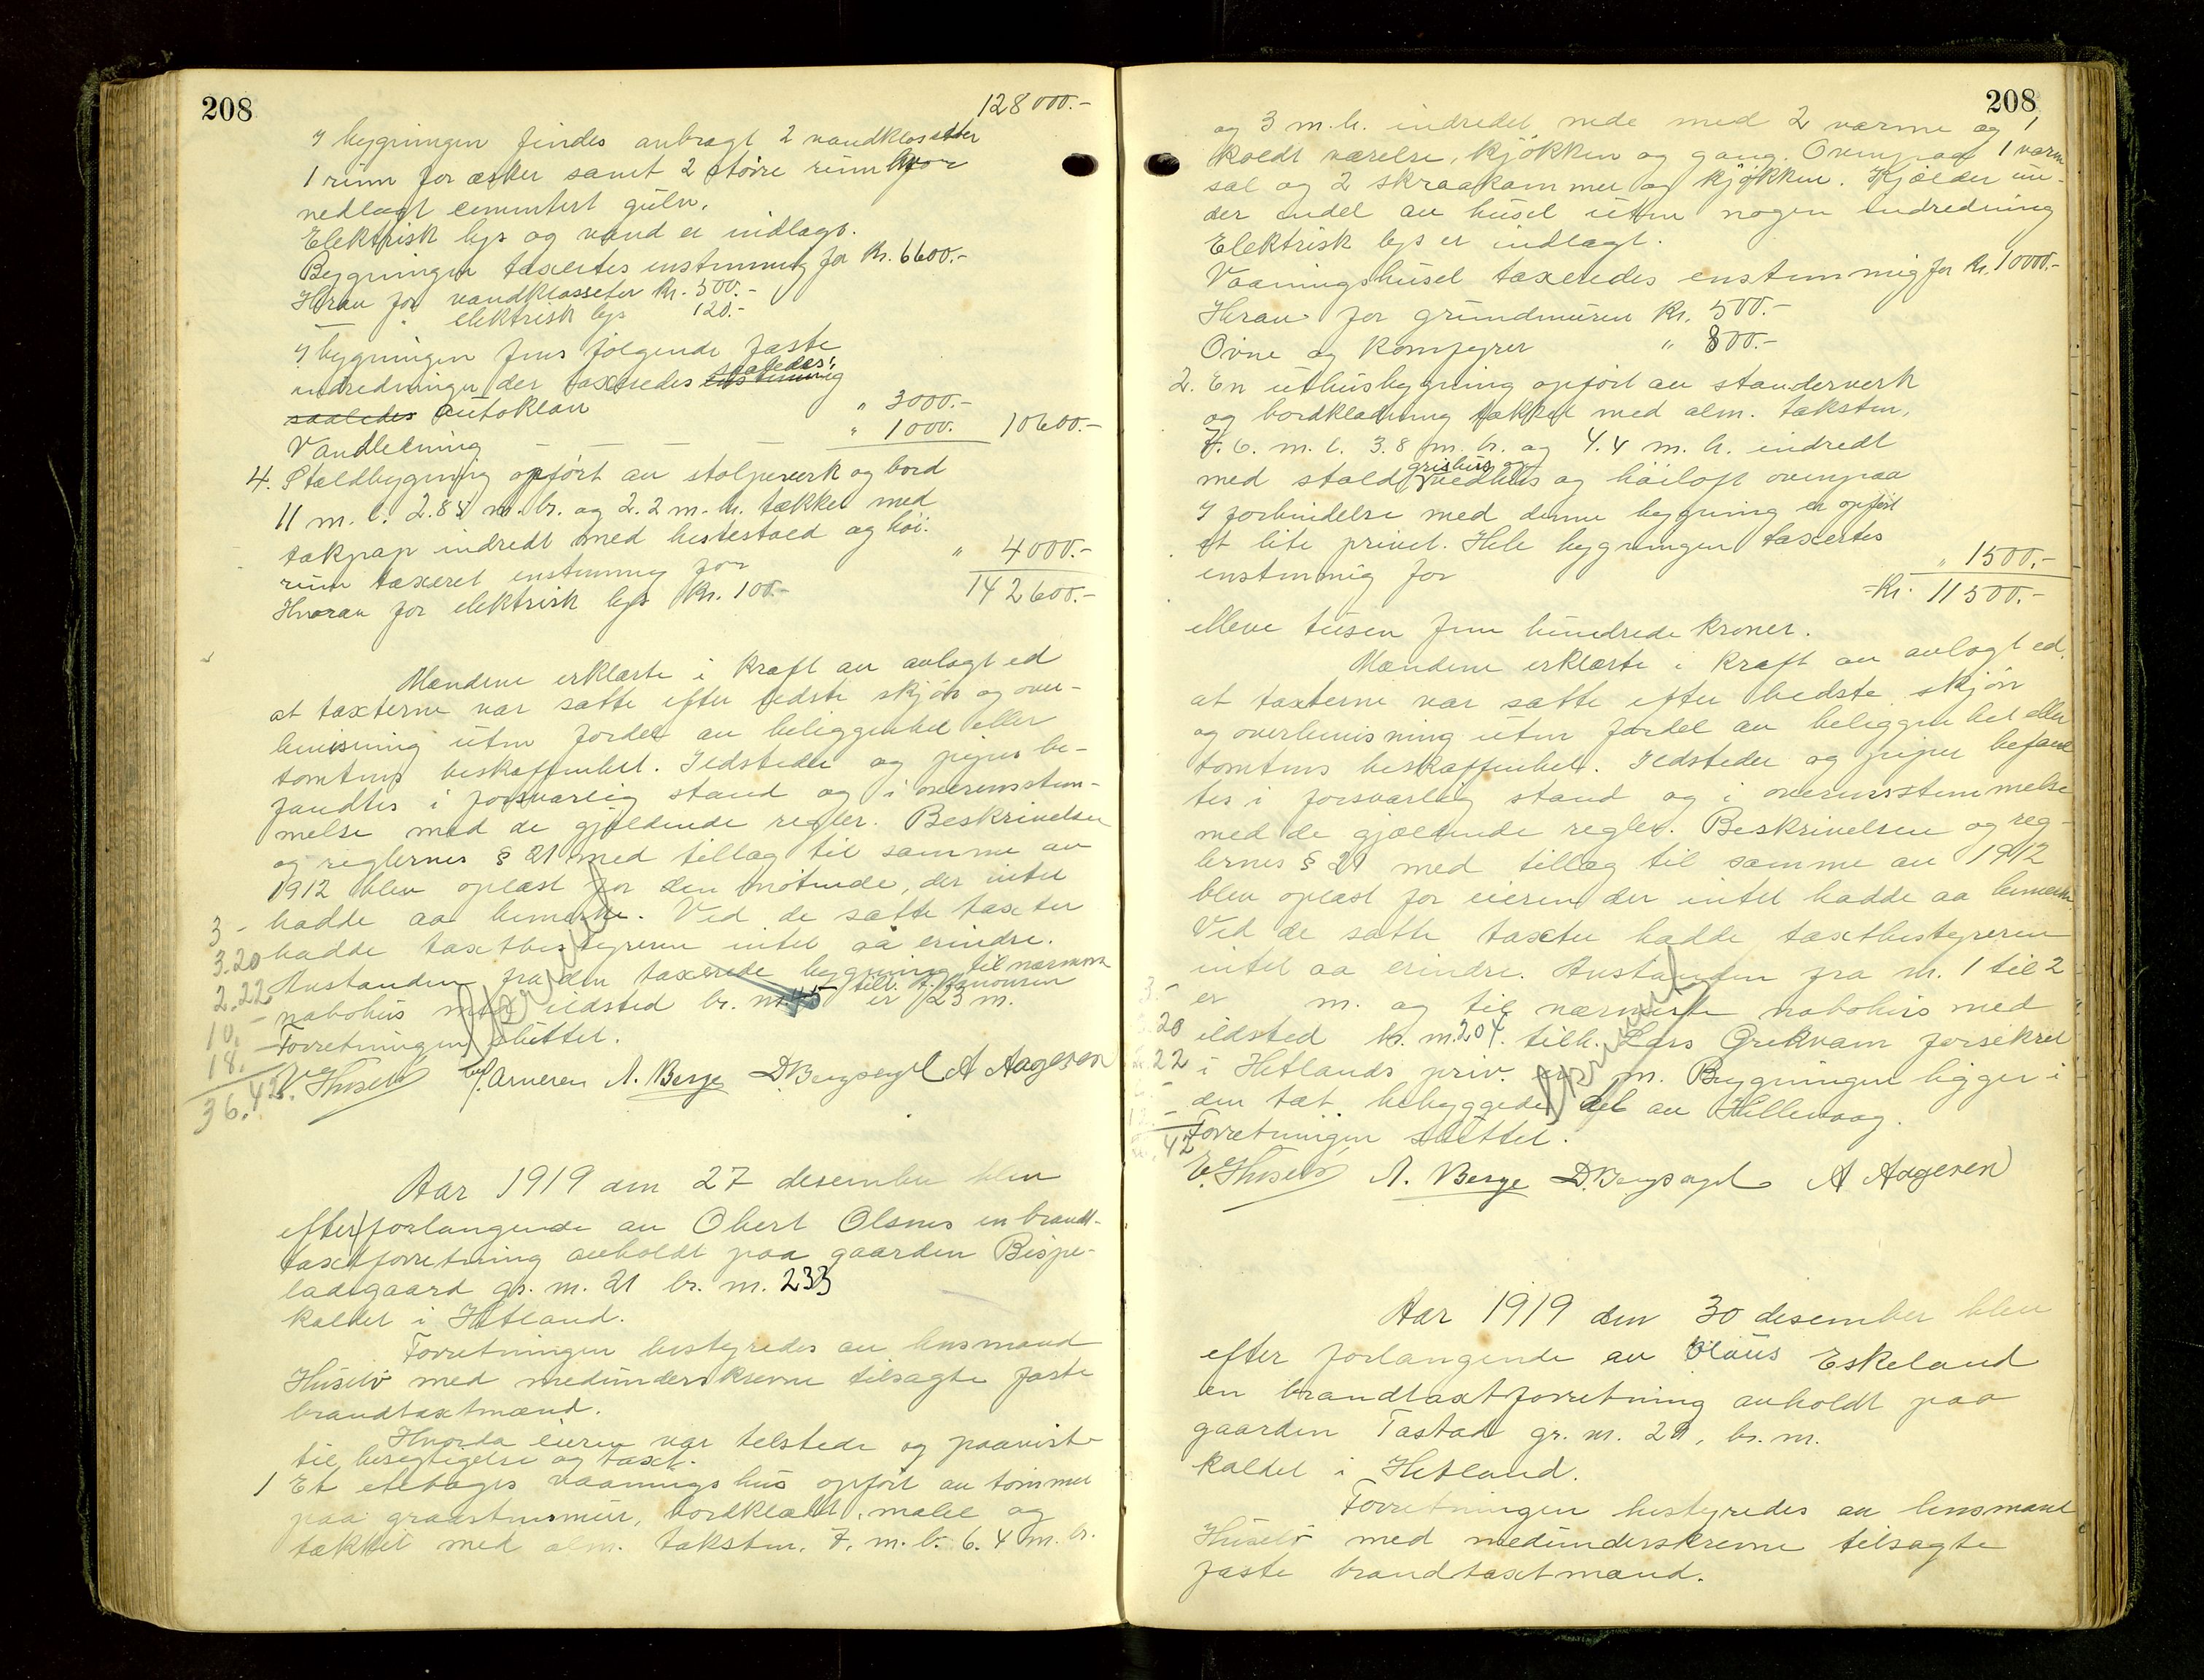 208
128000.-
I bygningen findes anbragt 2 vandklosetter
1 rum for æsker samt 2 större rum hvor
nedlagt cementert gulv.
Elektrisk lys og vand er indlagt.
Bygningen taxertes enstemmig for Kr. 6600.-
Herav for vandklosseter Kr. 500.-
— " elektrisk lys 120.-
I bygningen fins følgende faste
indredninger der taxeredes enstemmig saaledes:
saaledes Autoklav " 3000.-
Vandledning — — — — " 1000.- 10600.-
4. Staldbygning opført av stolpeverk og bord
11 m. l. 2.85 m. br. og 2.2 m. h. tækket med
takpap indredt med hestestald og höi-
rum taxeret enstemmig for " 4000.-
Hvorav for elektrisk lys Kr. 100.- 142600.-
Mændene erklærte i kraft av avlagt ed
at taxterne var satte efter bedste skjøn og over-
bevisning uten fordel av beliggenhet eller
tomtens beskaffenhet. Ildsteder og piper be-
fandtes i forsvarlig stand og i overensstem-
melse med de gjældende regler. Beskrivelsen
og reglernes § 21 med tillæg til samme av
1912 blev oplæst for den møtende, der intet
hadde aa bemerke. Ved de satte taxter
hadde taxtbestyreren intet aa erindre.
Avstanden fra den taxerede bygning til nærmeste
nabohus med ildsted br. nr. 45 tilh. er 23 m.
Forretningen sluttet.
3 -
3.20
2.22
10. -
18. -
36.42
E. Husebö Arnesen A. Berge D. Bergsagel A Aagesen
Aar 1919 den 27 desember blev
efter forlangende av Obert Olsnes en brandt-
taxtforretning avholdt paa gaarden Bispe-
ladegaard gr. nr. 21 br. nr. 233
kaldet i Hetland.
Forretningen bestyredes av lensmand
Husebö med medunderskrevne tilsagte faste
brandtaxtmænd.
Hvorda eieren var tilstede og paaviste
til besigtigelse og taxt.
1 Et etetages vaaningshus opført av tømmer
paa graastensmur, bordklædt, malet og
tækket med alm. taksten. 7. m. l. 6.4 m. br.
208
og 3 m. h. indredet nede med 2 varme og 1
koldt værelse, kjøkken og gang. Ovenpaa 1 varm
sal og 2 skraakammer og kjøkken. Kjælder un-
der endel av huset uten nogen indredning
Elektrisk lys er indlagt.
Vaaningshuset taxeredes enstemmig for Kr. 10000.-
Herav for grundmuren Kr. 500.-
Ovne og komfyrer " 800.-
2. En uthusbygning opført av standerverk
og bordklædning tækket med alm. taksten,
7.6. m. l. 3.8 m. br. og 4.4 m. h. indredt
med stald, grishus og vedhus og höiloft ovenpaa
I forbindelse med denne bygning er opført
et lite privet. Hele bygningen taxertes
enstemmig for " 1500.-
Kr. 11500.-
elleve tusen fem hundrede kroner.
Mændene erklærte i kraft av avlagt ed.
at taxterne var satte efter bedste skjøn
og overbevisning uten fordel av beliggenhet eller
tomtens beskaffenhet. Ildsteder og piper befand
tes i forsvarlig stand og i overensstemmelse
med de gjældende regler. Beskrivelsen og reg-
lernes § 21 med tillæg til samme av 1912
blev oplæst for eieren der intet hadde aa bemerke.
Ved de satte taxter hadde taxtbestyreren
intet aa erindre. Avstanden fra nr. 1 til 2
er m. og til nærmeste nabohus med
ildsted br. nr. 204. tilh. Lars Grekvam forsikret
i Hetlands priv. m. Bygningen ligger i
den tæt bebyggede del av Hillevaag.
Forretningen sluttet.
3. -
20
22
42
E. Husebö A. Berge D. Bergsagel A Aagesen
Aar 1919 den 30 desember blev
efter forlangende av Olaus Eskeland
en brandtaxtforretning avholdt paa
gaarden Tastad gr. nr. 29, br. nr.
kaldet i Hetland.
Forretningen bestyredes av lensmand
Husebö med medunderskrevne tilsagte
faste brandtaxtmænd.